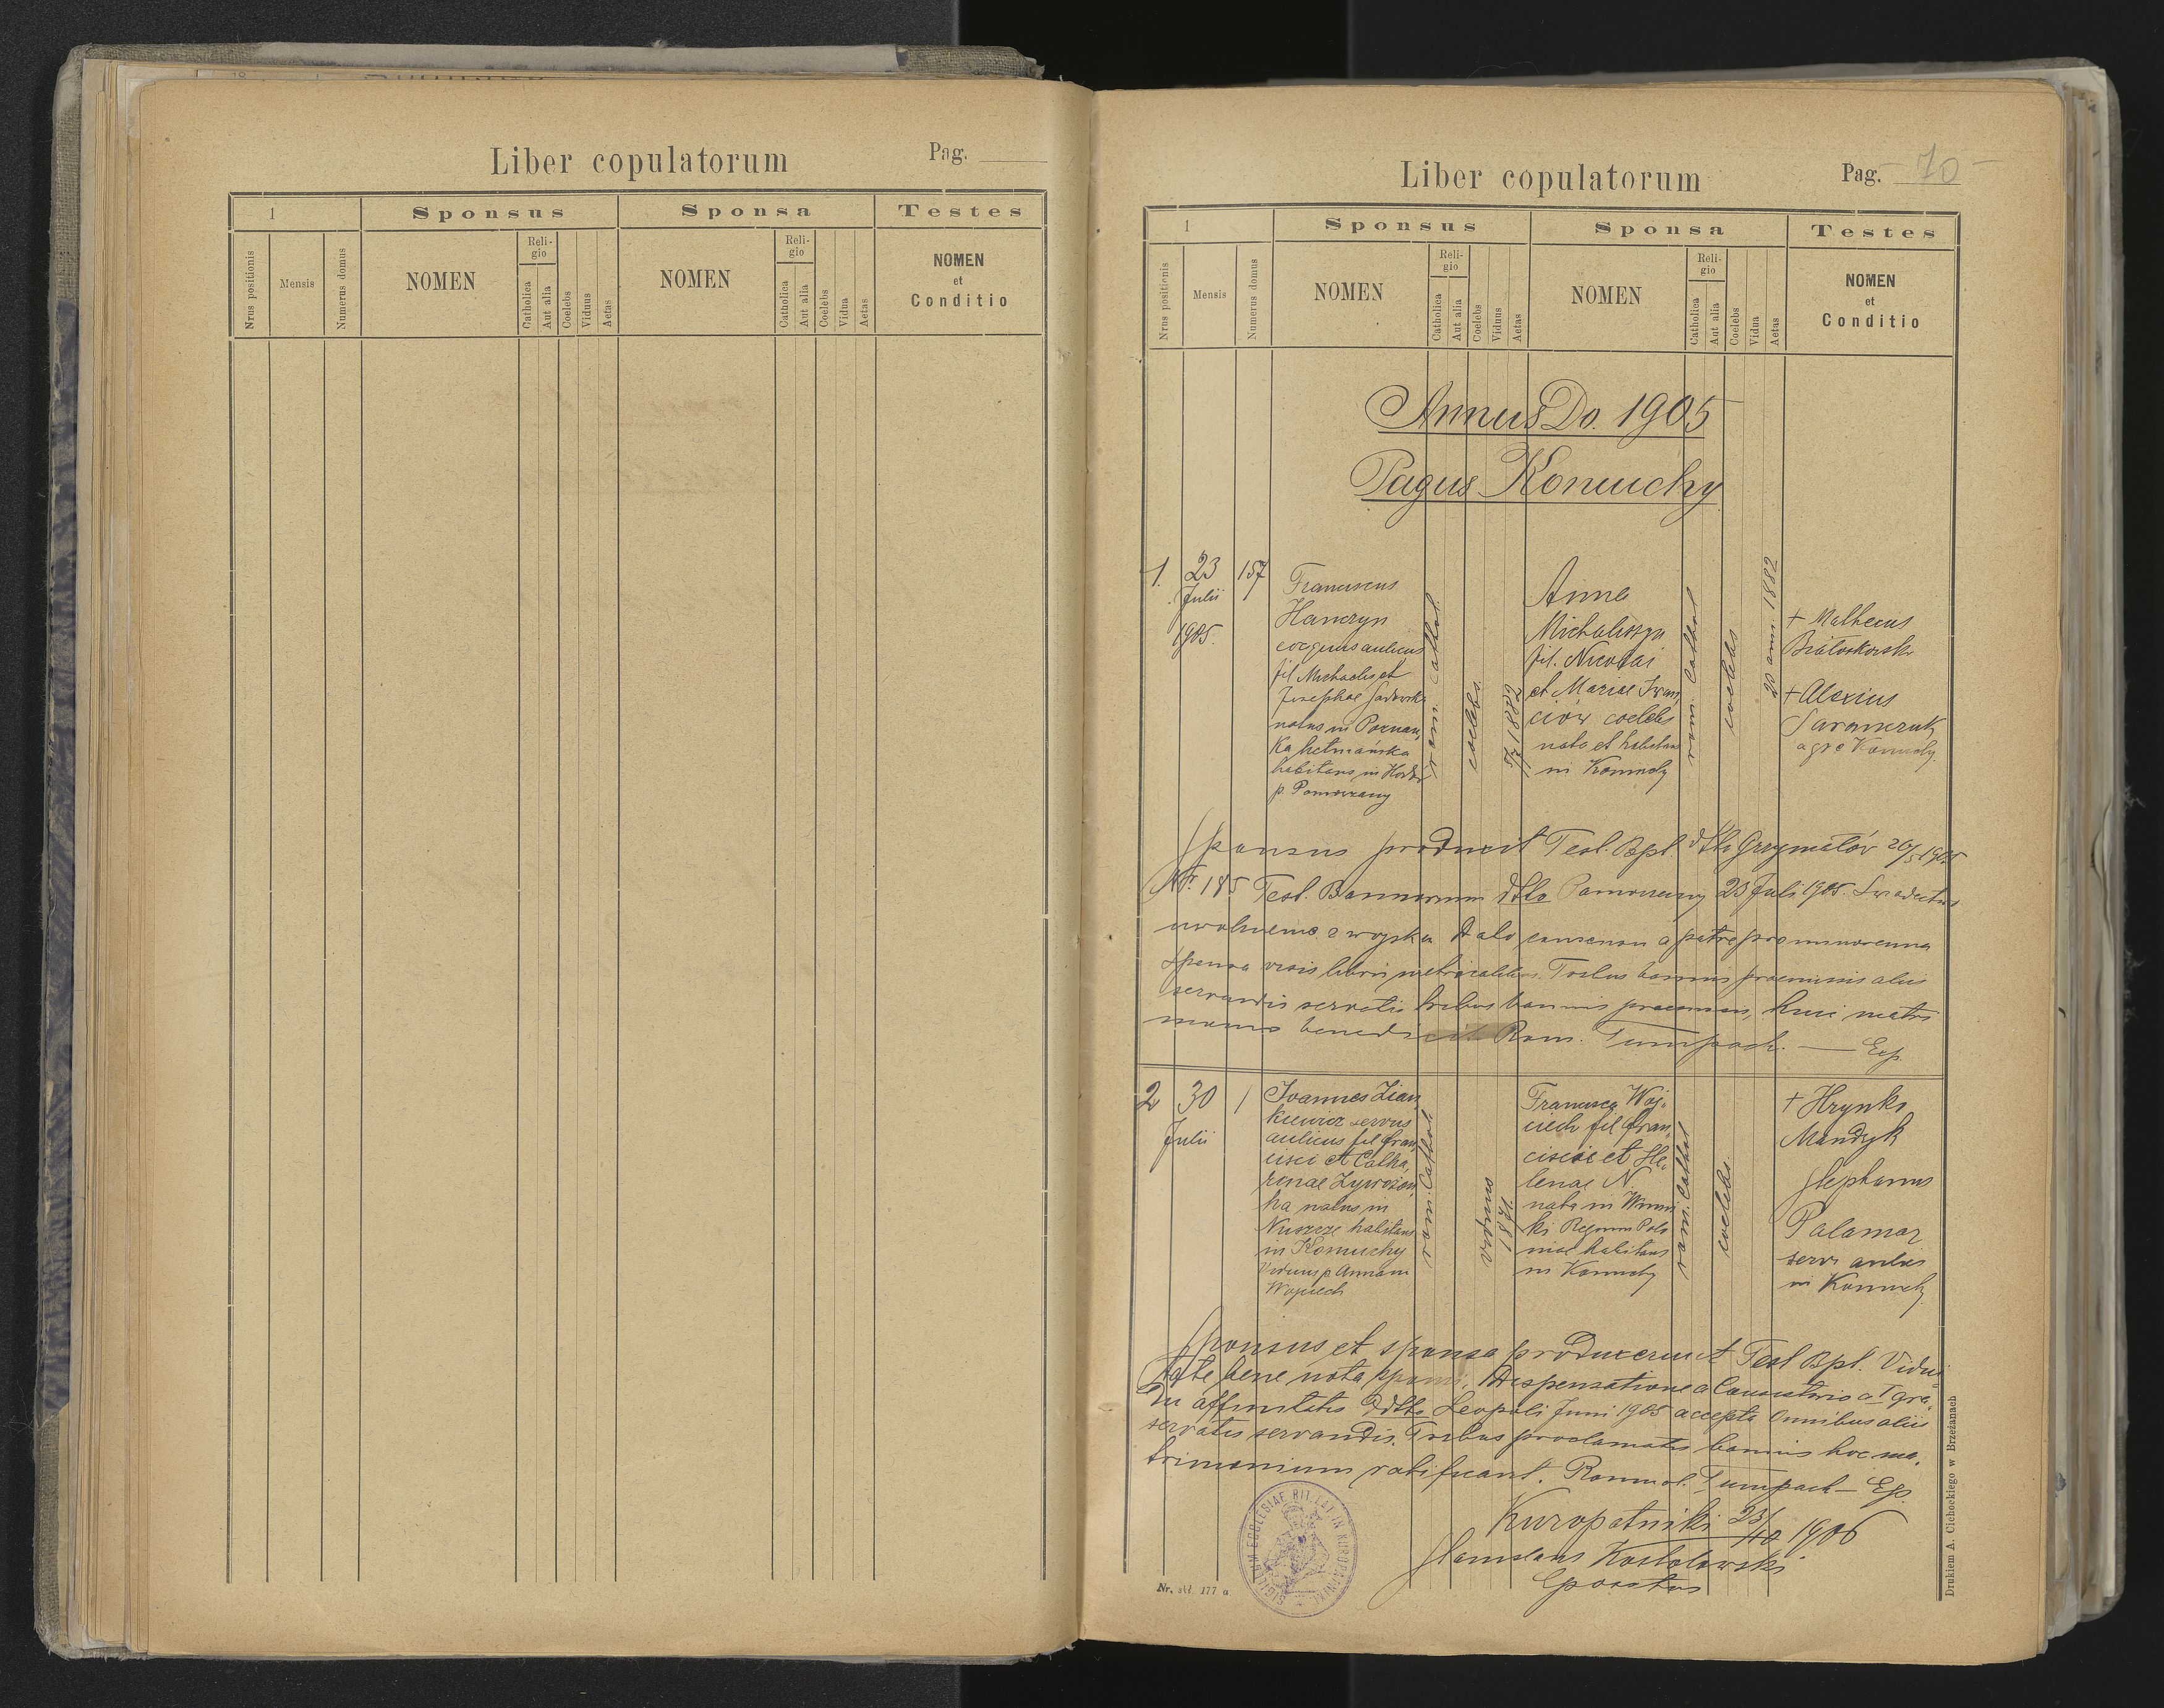 Liber copulatorum
Pag.
1
Sponsus
Sponsa
Testes
Nrus positionis
Mensis
Numerus domus
NOMEN
Reli-
gio
Catholica
Aut alia
Coelebs
Viduus
Aetas
NOMEN
Reli-
gio
Catholica
Aut alia
Coelebs
Vidua
Aetas
NOMEN
et
Conditio
Liber copulatorum
Pag. 70
1
Sponsus
Sponsa
Testes
Nrus positionis
Mensis
Numerus domus
NOMEN
Reli-
gio
Catholica
Aut alia
Coelebs
Viduus
Aetas
NOMEN
Reli-
gio
Catholica
Aut alia
Coelebs
Vidua
Aetas
NOMEN
et
Conditio
Annus Do. 1905
Pagus Koniuchy
1.
23
Julii
1905.
157
Franciscus
Hanczyn
aulicus
fil Michaelis et
Josephae
natus in Poznan,
ka hetmańska
habitans in
p. Pomorzany
rom. cathol.
coelebs.
5/7 1882
Anna
Michaliszyn
fil. Nicolai
et Mariae Iwan,
ciów coelebs
nata et habitans
in Koniuchy
rom. Cathol
coelebs
20 ann. 1882
+ Matheus
+ Alexius
agr. Koniuchy.
Sponsus producit Test. Bpt. dtto Grzymałów 20/5 1905
Nr. 185 Test. Bannorum ddto Pomorzany 23 Juli 1905.
uwolnienia z wojska Dato consensu a patre pro minorenna
sponsa visis libris metricalibus. Tribus bannis praemissis aliis
servandis servatis tribus bannis praemissis, huic matri
monio benedixit Rom. Tumpach. — Exp.
2
30
Julii
1
Joannes Zian
kiewicz servus
aulicus fil Fran,
cisci et Catha,
rinae
ka natus in
Nuszcze habitans
in Koniuchy
Viduus p. Annam
Wojciech
rom. Cathol.
viduus
1871.
Francisca Woj,
ciech fil Fran,
cisci et He,
lenae N.
nata in
ki Regnum Polo
niae habitans
in Koniuchy
rom. Cathol
coelebs.
+ Hrynko
Mandyk
Stephanus
Palamar
servi aulici
in Koniuchy
Sponsus et sponsa produxerunt Test Bpt. Vidui
tate bene nota sponsi, Dispensatione a Consistorio a I gra,
du affinitatis Ddtto Leopoli Juni 1905 accepta Omnibus aliis
servatis servandis. Tribus proclamatis bannis hoc ma,
trimonium ratificant. Romuol. Tumpach — Exp.
Kuropatniki 23/10 1906
Stanislaus
Expositus
Nr. skł. 177 a
Drukiem A. Cichockiego w Brzeżanach